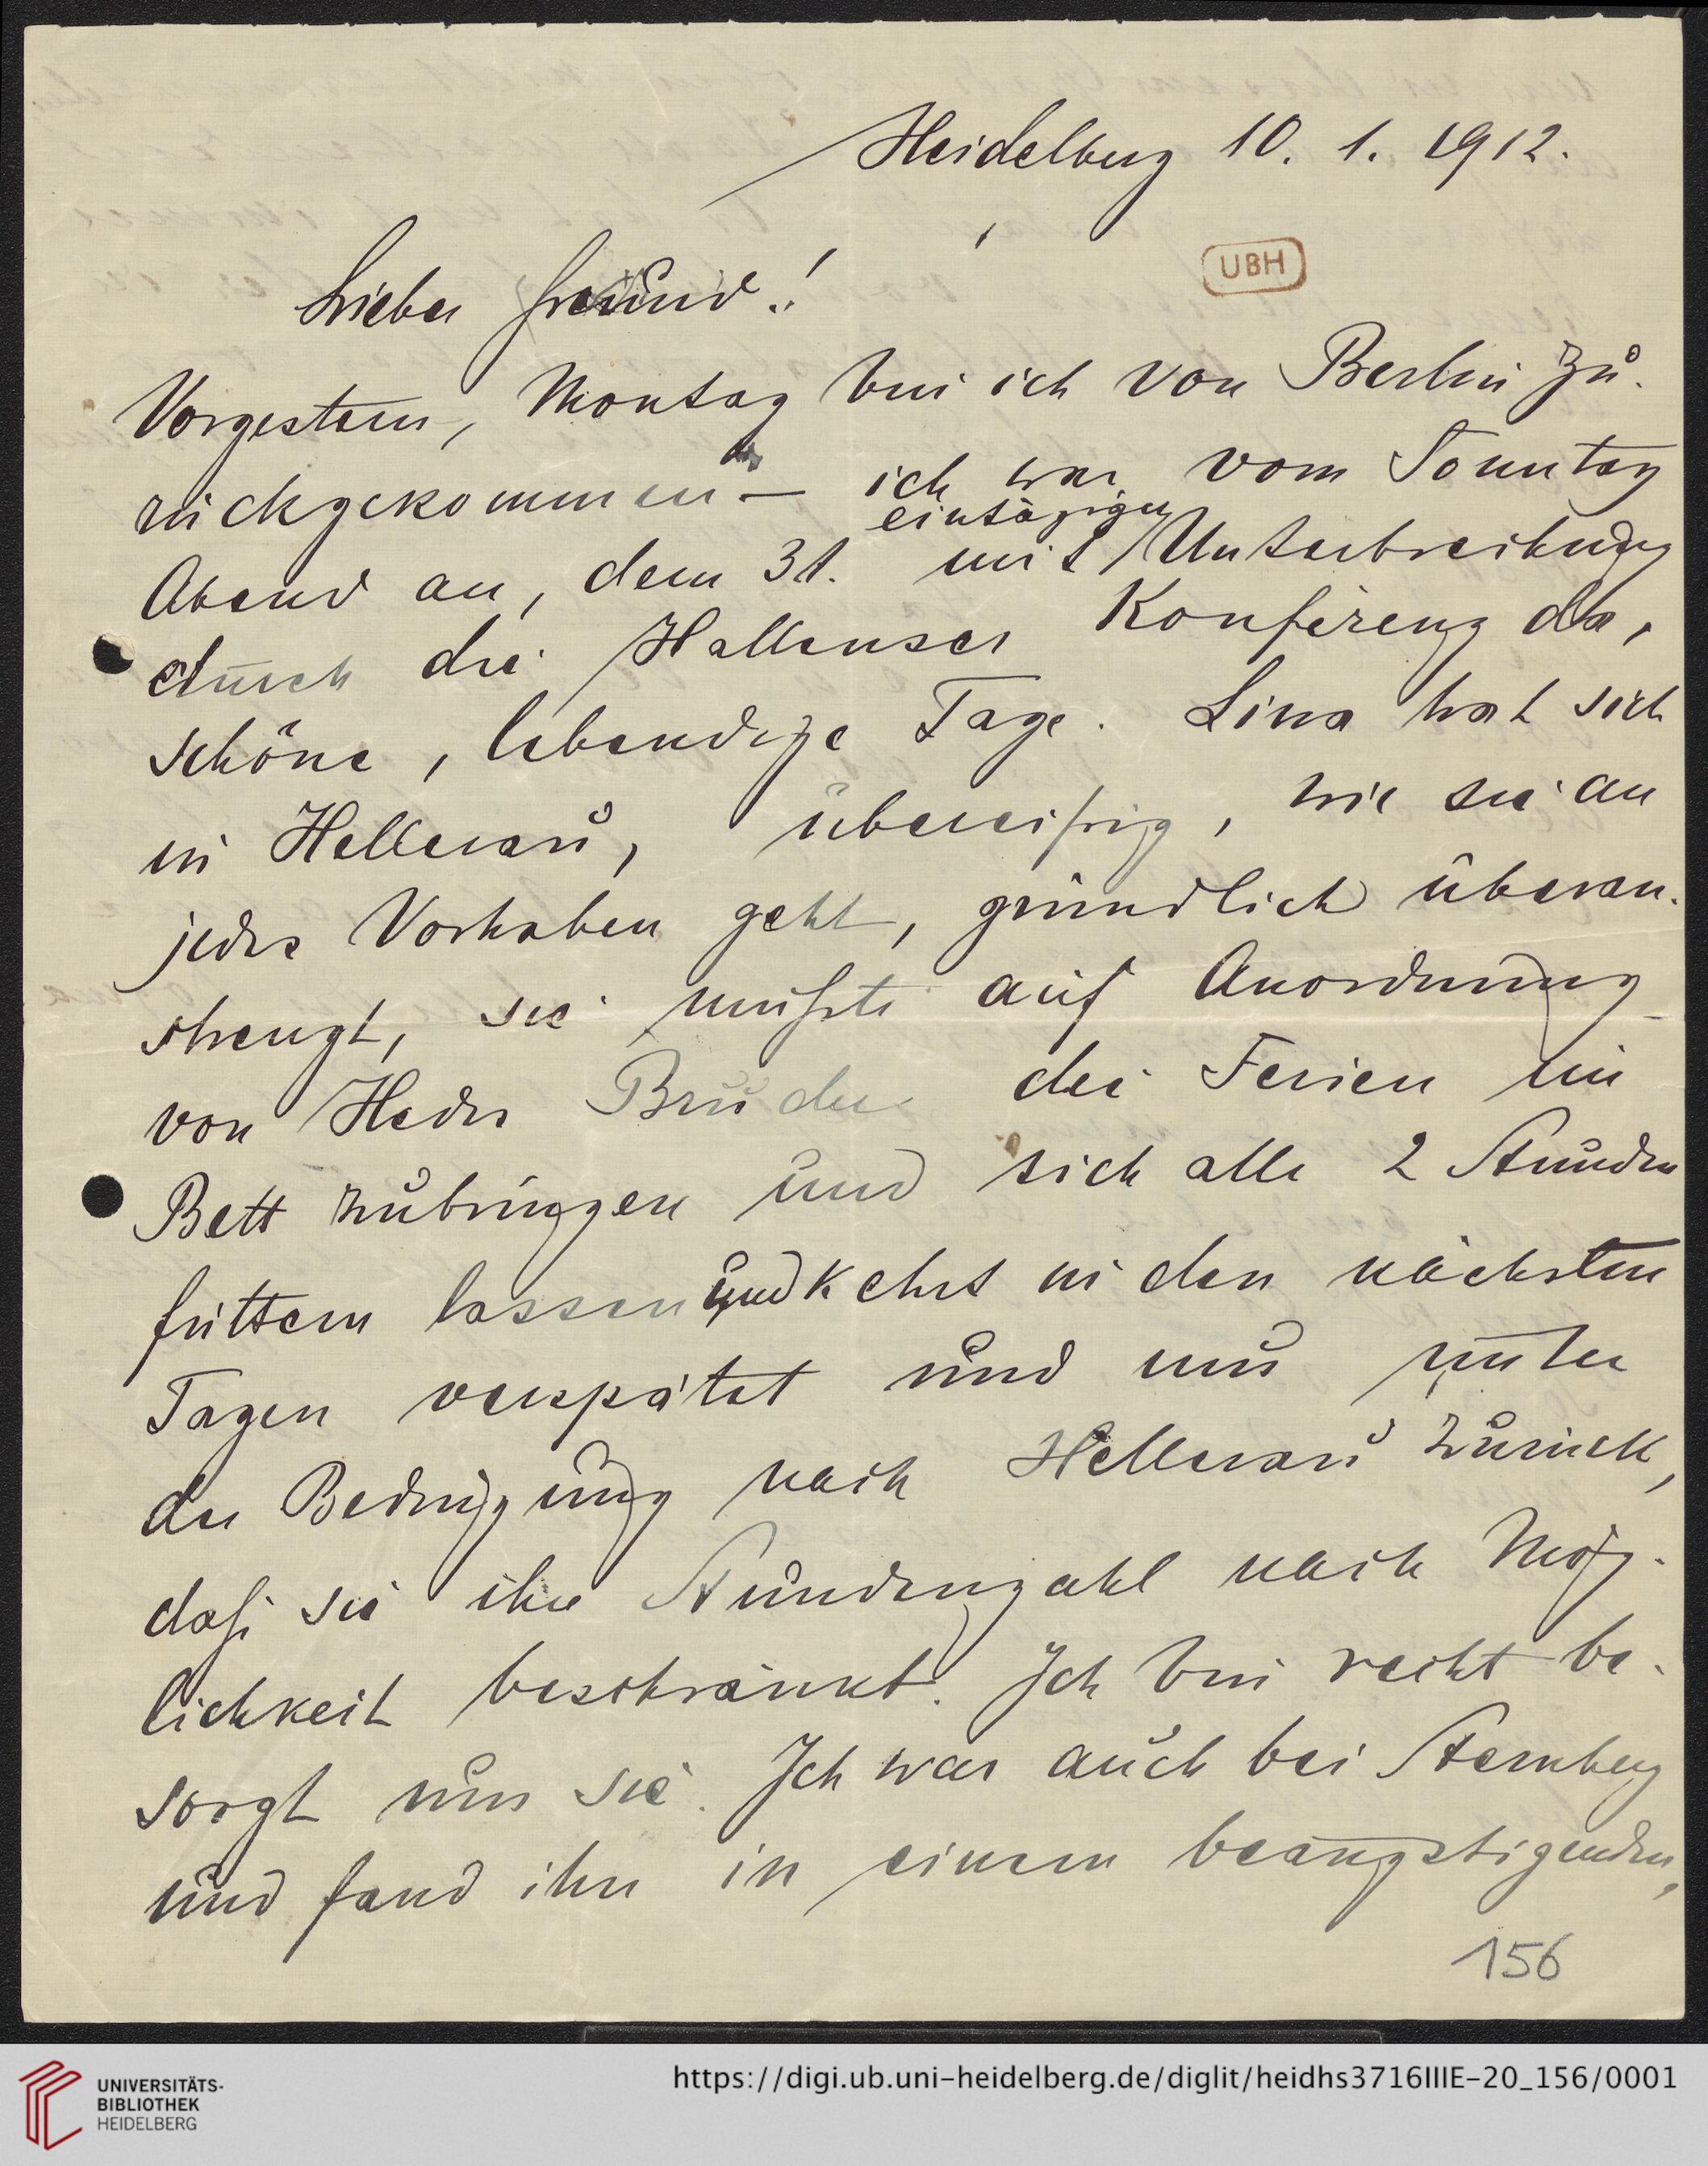 Heidelberg 10. 1. 1912.
UBH
Lieber Freund!
Vorgestern, Montag bin ich von Berlin zu-
rückgekommen – ich war vom Sonntag
eintägiger
Abend an, dem 31. mit Unterbrechung
durch die Hallenser Konferenz da,
schöne, lebendige Tage. Lina hat sich
in Hellerau, übereifrig, wie sie an
jedes Vorhaben geht, gründlich überan-
strengt, sie mußte auf Anordnung
von Hedes Bruder die Ferien im
Bett zubringen und sich alle 2 Stunden
füttern lassen und kehrt in den nächsten
Tagen verspätet und nur unter
der Bedingung nach Hellerau zurück,
daß sie ihre Stundenzahl nach Mög-
lichkeit beschränkt. Ich bin recht be-
sorgt um sie. Ich war auch bei Sternberg
und fand ihn in einem beängstigenden,
156
UNIVERSITÄTS-
BIBLIOTHEK
HEIDELBERG
https://digi.ub.uni-heidelberg.de/diglit/heidhs3716IIIE-20_156/0001